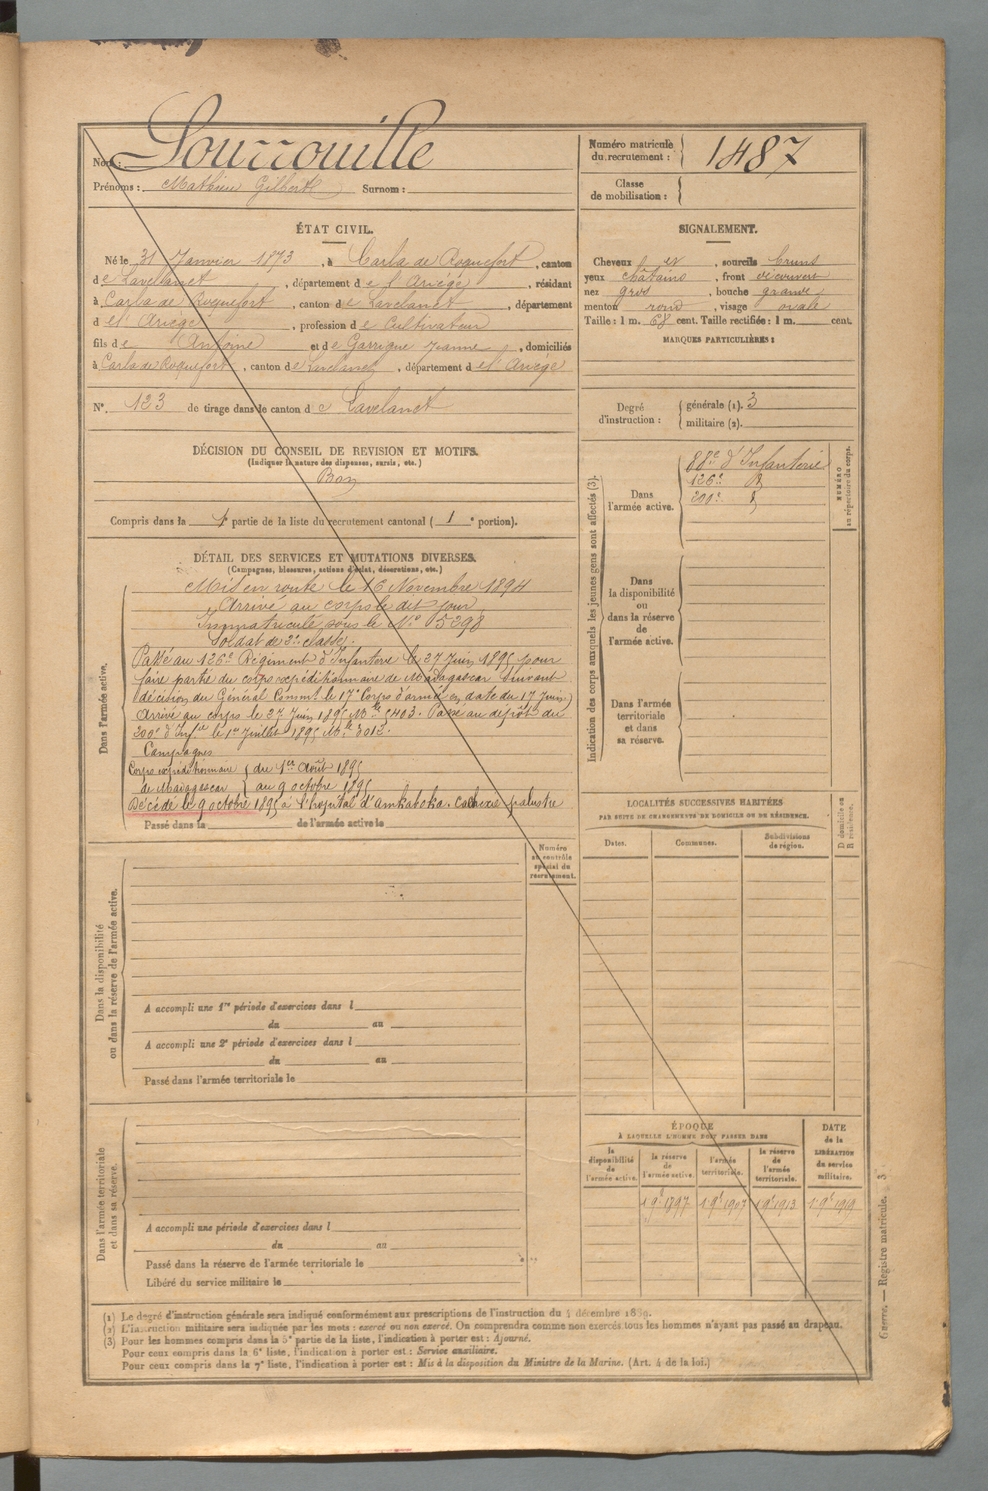 Nom : Sourrouille
Prénoms : Mathieu Gilbert Surnom :
Numéro matricule du recrutement : 1487
Classe de mobilisation :
ÉTAT CIVIL.
Né le 31 Janvier 1873, à Carla de Roquefort, canton
de Lavelanet, département de l'Ariège, résidant
à Carla de Roquefort, canton de Lavelanet, département
d el' Ariège, profession de Cultivateur
fils de Antoine et de Garrigue Jeanne, domiciliés
à Carla de Roquefort, canton de Lavelanet, département d el' Ariège
N° 123 de tirage dans le canton de Lavelanet
SIGNALEMENT.
Cheveux et, sourcils bruns
yeux châtains, front découvert
nez gros, bouche grande
menton rond, visage ovale
Taille : 1 m. 68 cent. Taille rectifiée : 1 m. cent.
MARQUES PARTICULIÈRES :
Degré d'instruction : générale (1). 3
militaire (2).
DÉCISION DU CONSEIL DE REVISION ET MOTIFS.
(Indiquer la nature des dispenses, sursis, etc.)
Bon
Compris dans la 1e partie de la liste du recrutement cantonal ( 1e portion).
DÉTAIL DES SERVICES ET MUTATIONS DIVERSES.
(Campagnes, blessures, actions d'éclat, décorations, etc.)
Dans l'armée active.
Mis en route le 16 Novembre 1894
Arrivé au corps le dit jour
Immatriculé sous le N° 5298
Soldat de 2e classe.
Passé au 126e Régiment d'Infanterie le 27 Juin 1895 pour
faire partie du corps expéditionnaire de Madagascar (suivant
décision du Général Commt le 17e Corps d'armée en date du 17 Juin)
Arrivé au corps le 27 Juin 1895 Nle 5403. Passé au dépôt du
200e d'Infie le 1er Juillet 1895 Nle 3012.
Campagnes
Corps expéditionnaire de Madagascar du 1er Août 1895
au 9 octobre 1895
Décédé le 9 octobre 1895 à l'hopital d'Ankaboka. Cachexie palustre
Passé dans la de l'armée active le
Indication des corps auxquels les jeunes gens sont affectés (3).
Dans l'armée active.
88e d'Infanterie
126e
200e
NUMÉRO au répertoire du corps.
Dans la disponibilité ou dans la réserve de l'armée active.
Dans l'armée territoriale et dans sa réserve.
LOCALITÉS SUCCESSIVES HABITÉES
PAR SUITE DE CHANGEMENTS DE DOMICILE OU DE RÉSIDENCE.
Dates. Communes. Subdivisions de région. D domicile ou R résidence.
Numéro au contrôle spécial du recrutement.
Dans la disponibilité ou dans la réserve de l'armée active.
A accompli une 1re période d'exercices dans l
du au
A accompli une 2e période d'exercices dans l
du au
Passé dans l'armée territoriale le
Dans l'armée territoriale et dans sa réserve.
A accompli une période d'exercices dans l
du au
Passé dans la réserve de l'armée territoriale le
Libéré du service militaire le
ÉPOQUE
À LAQUELLE L'HOMME DOIT PASSER DANS
la disponibilité de l'armée active. la réserve de l'armée active. l'armée territoriale. la réserve de l'armée territoriale.
DATE de la LIBÉRATION du service militaire.
1 9e 1897 1 9e 1907 1 9e 1913 1 9e 1919
Guerre. — Registre matricule. 3
(1) Le degré d'instruction générale sera indiqué conformément aux prescriptions de l'instruction du 4 décembre 1889.
(2) L'instruction militaire sera indiquée par les mots : exercé ou non exercé. On comprendra comme non exercés tous les hommes n'ayant pas passé au drapeau.
(3) Pour les hommes compris dans la 5e partie de la liste, l'indication à porter est : Ajourné.
Pour ceux compris dans la 6e liste, l'indication à porter est : Service auxiliaire.
Pour ceux compris dans la 7e liste, l'indication à porter est : Mis à la disposition du Ministre de la Marine. (Art. 4 de la loi.)